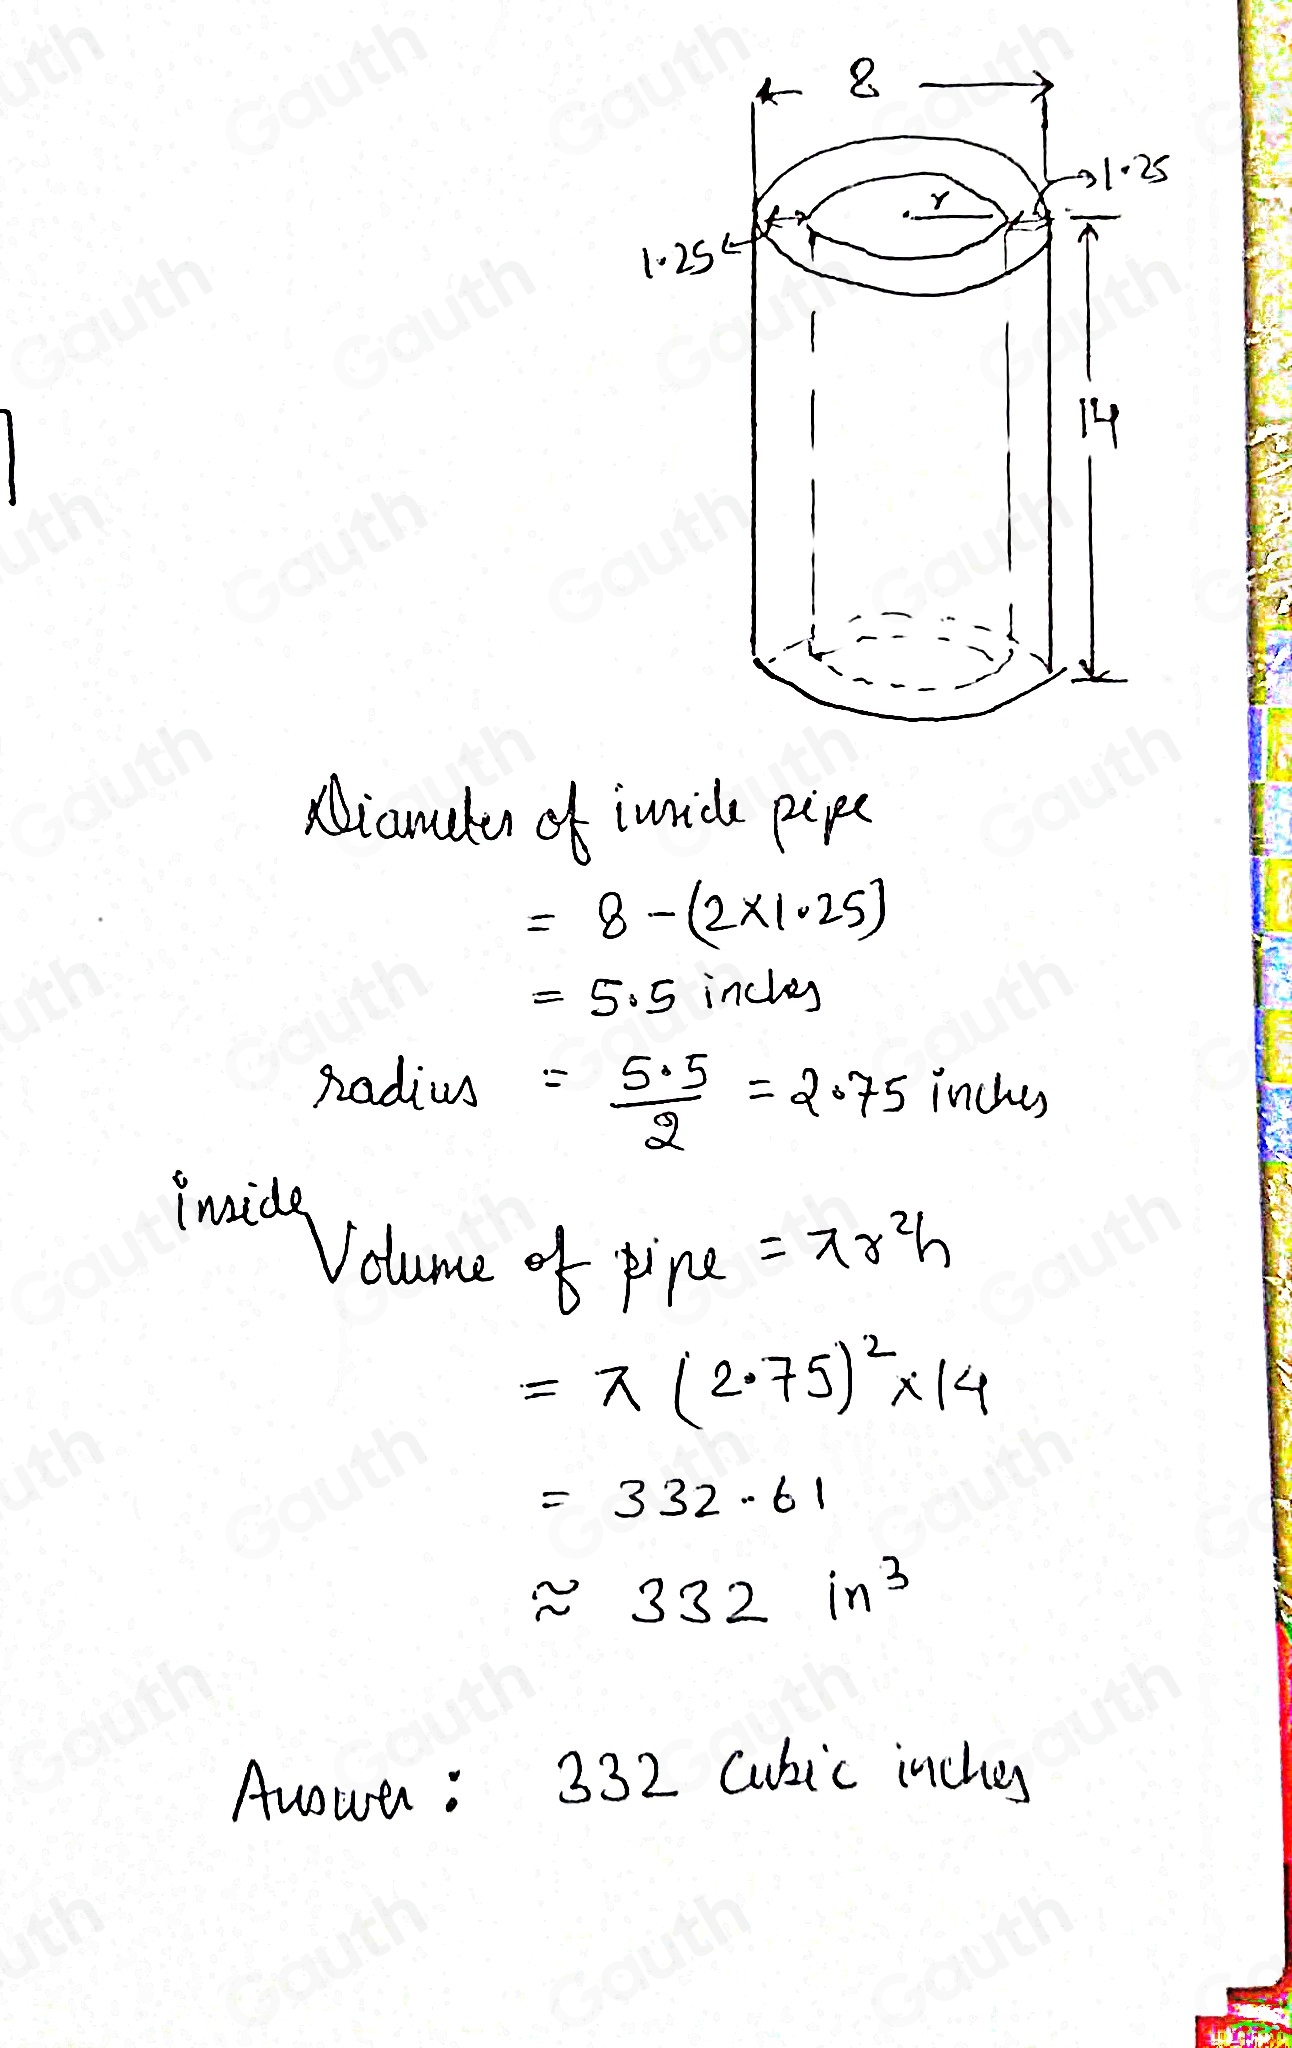 8
1.25
r
1.25
14
Diameter of inside pipe
= 8 - (2×1.25)
= 5.5 inches
radius = 5.5/2 = 2.75 inches
inside Volume of pipe = πr²h
= π (2.75)² × 14
= 332.61
≈ 332 in³
Answer : 332 Cubic inches
Gauth